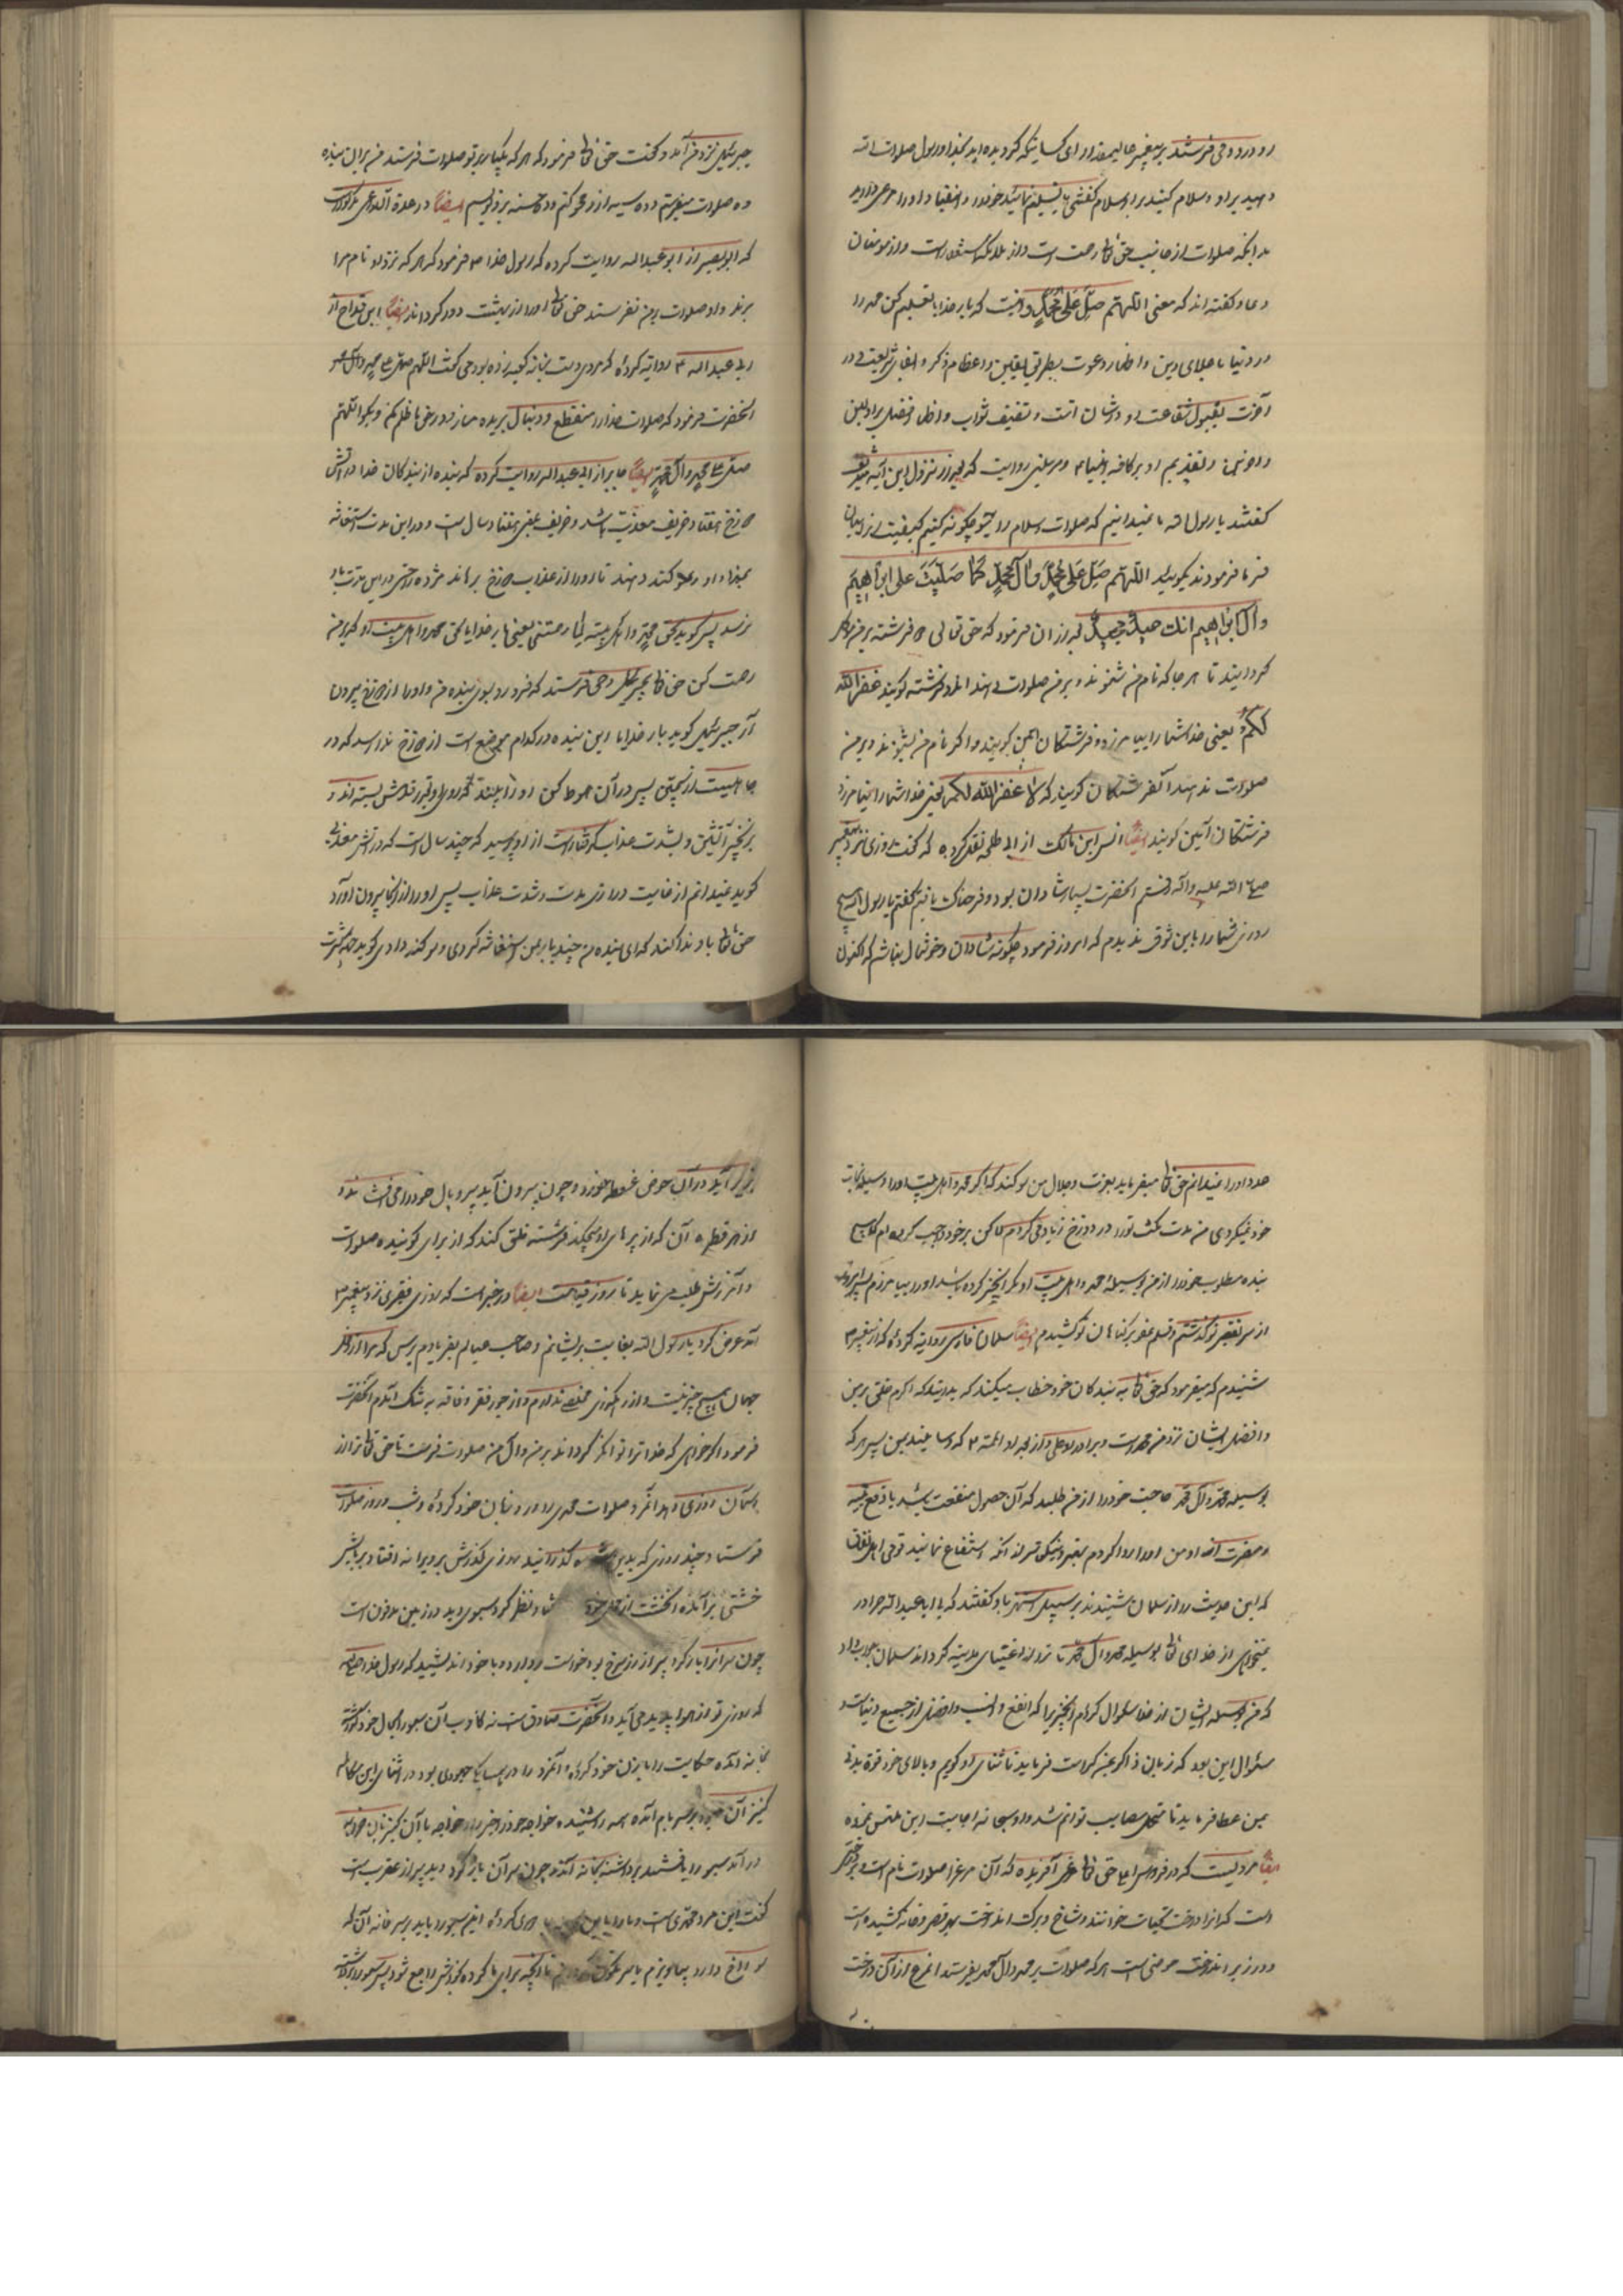 رو درود می فرستند بر پیغمبر عالیمقدار ای کسانیکه گرویده اید بخدا و رسول صلوات
دهید بر او و سلام کنید بر او سلام کفتنی یا تسلیم نمائید خود را و انقیاد او را مرعی دارید
بدانکه صلوات از جانب حق تعالی رحمت است و از ملائکه استغفار است و از مومنان
دعا و کفته اند که معنی اللهم صل علی محمد وانیست که بار خدایا تعظیم کن محمد را
در دنیا باعلای دین و اظهار دعوت بطریق یقین و اعظام ذکر و ابقای شریعت و در
آخرت بقبول شفاعت او در شان امت و تضعیف ثواب و اظهار فضل بر اولین
و آخرین و تقدیم او بر کافه انبیا و مرسلین روایت که بعد از نزول این آیه شریفه
کفتند یا رسول الله ما نمیدانیم که صلوات و سلام را بر تو چکونه کنیم کیفیت را بیان
فرما فرمودند بکوئید اللهم صل علی محمد وآل محمد کما صلیت علی ابراهیم
وآل ابراهیم انک حمید مجید بعد از آن فرمود که حق تعالی دو فرشته بر من موکل
کردانید تا هر جا که نام من شنوند و بر من صلوات دهند آن دو فرشته کویند غفر الله
لکم یعنی خدا شما را بیامرزد و فرشتکان آمین کویند و اکر نام من بشنوند و بر من
صلوات ندهند آنفرشتکان کویند که لا غفر الله لکم یعنی خدا شما را نیامرزد
فرشتکان آمین کویند ایضا انس ابن مالک از ابی طلحه نقل کرده که کفت روزی نزد پیغمبر
صلی الله علیه و آله رفتم آنحضرت بسیار شادان بود و فرحناک یافتم کفتم یا رسول الله هیچ
روزی شما را باین ذوق ندیدم که امروز فرمود چکونه شادان و خوشحال نباشم که اکنون
جبرئیل نزد من آمد و کفت حق تعالی فرمود که هر که یکبار بر تو صلوات فرستد من بر آن بنده
ده صلوات میفرستم و ده سیئه از او محو کنم و ده حسنه بر او نویسم ایضا در عدة الداعی مذکور است
که ابو بصیر از ابو عبدالله روایت کرده که رسول خدا فرمود که هر که نزد او نام مرا
برند و او صلوات بمن نفرستد حق تعالی او را از بهشت دور کرداند ایضا ابن قداح از
ابی عبدالله روایه کرده که مردی دست بخانه کعبه زده بود می کفت اللهم صل علی محمد وآل محمد
آنحضرت فرمود که صلوات خدا را منقطع و دنبال بریده مساز و در حق ما ظلم مکن و بکو اللهم
صل علی محمد وآل محمد ایضا جابر از ابی عبدالله روایت کرده که بنده از بندکان خدا در آتش
دوزخ هفتاد خریف معذب باشد و خریف یعنی هفتاد سال است و در این مدت استغاثه
بخدا و او را سوکند دهند تا او را از عذاب دوزخ برهاند مژده رحمتی در این مدت باو
نرسد پس کوید بحق محمد واهل بیته لما رحمتنی یعنی بار خدایا بحق محمد و اهل بیت او که بر من
رحمت کن حق تعالی بجبرئیل وحی فرستد که فرو رو بسوی بنده من و او را از دوزخ بیرون
آر جبرئیل کوید بار خدایا این بنده در کدام موضع است از دوزخ ندا رسد که در
چاهیست از سجین پس در آن هبوط کن او را بیند بسته اند و
بزنجیر آتشین و بشدت عذاب کرفتار است از او پرسید که چند سال است که در آتش معذبی
کوید نمیدانم از غایت درازی مدت و شدت عذاب پس او را از آنجا بیرون آورد
حق تعالی باو ندا کند که ای بنده من چند بار بمن استغاثه کردی و سوکند دادی کوید
عدد او را نمیدانم حق تعالی میفرماید بعزت و جلال من سوکند که اکر محمد و اهل بیت او را وسیله نجات
خود نمیکردی من مدت مکث تو را در دوزخ زیاد می کردم لاکن بر خود واجب کرده ام که هیچ
بنده مطلوب خود را از من بوسیله محمد و اهل بیت او مکر آنچیز کرده باشد او را بیامرزم
از سر تقصیر تو کذشتم و قلم عفو بر کناهان تو کشیدم ایضا سلمان فارسی روایه کرده که از پیغمبر
شنیدم که میفرمود که حق تعالی به بندکان خود خطاب میکند که بدانید که اکرم خلق بر من
و افضل ایشان نزد من محمد است و برادر او علی و از بعد او ائمه که وسایلند بمن پس هر که
بوسیله محمد وآل محمد حاجت خود را از من طلبد که آن حصول منفعت باشد یا دفع
و مضرت از او من او را روا کردم بهتر و نیکوتر از آنکه استشفاع نمایند قومی اهل نفاق
که این حدیث را از سلمان شنیدند بر سبیل استهزا باو کفتند که یا ابا عبدالله چرا در
نمیخواهی از خدای تعالی بوسیله محمد وآل محمد تا تو را از اغنیای مدینه کرداند سلمان جواب داد
که من بوسیله ایشان از خدا سئوال کرده ام آنچیز را که انفع و افضل از جمیع دنیاست
سئوال این بود که زبان ذاکر بمن کرامت فرماید تا ثنای او کویم و بالای خود قوة بدنی
بمن عطا فرماید تا متحمل مصایب توانم شد و او سبحانه اجابت این ملتمس نموده
ایضا مرویست که در فردوس اعلی حق تعالی مرغی آفریده که آن مرغ را صلوات نام است و بر درختی
است که آنرا درخت تحیات خوانند و شاخ و برکت آندرخت بهر قصر و خانه کشیده است
و در زیر آندرخت حوضی است هر که صلوات بر محمد وآل محمد بفرستد آنمرغ از آن درخت
بزیر آید در آن حوض غوطه خورد و چون بیرون آید پر و بال خود را می افشاند و
از هر قطره آن که از پرهای او میچکد فرشته خلق کند که از برای کوینده صلوات
و آمرزش طلب می نماید تا روز قیامت ایضا در خبر است که روزی فقیری نزد پیغمبر
آمد عرض کرد یا رسول الله بغایت پریشانم و صاحب عیالم بفریادم برس که مرا از
جهان هیچ چیز نیست و از درماندکی مخلصی ندارم و از جور فقر و فاقه به تنک آمدم آنحضرت
فرمود اکر خواهی که خدا ترا توانکر کرداند بر من وآل من صلوات فرست تا حق تعالی ترا از
آسمان روزی دهد آنمرد صلوات محمدی را ورد زبان خود کرده و شب و روز صلوات
فرستاد چند روزی که بدین کذرانید روزی کذرش بر ویرانه افتاد
خشتی نظر کرد سبوی دید در زمین مدفون است
چون سر آنرا باز کرد پر از زر سرخ بود خواست بردارد و با خود اندیشید که رسول خدا
که روزی تو از هوا پدید می آید و آنحضرت صادق است نه کاذب آن سبو را بحال خود کذاشته
بخانه آمده حکایت را با زن خود کرده و آنمرد را در همسایکی جهودی بود در اثنای این مکالمه
کنیز آن جهود بر سر بام آمده همه را شنیده خواجه خود را خبر داد خواجه با آن کنیز
در آمد سبو را یافتند برداشته بخانه آمدند چون سر آن باز کرد دید پر از عقرب است
کفت این مرد محمدی است و ما را باین کرده این سبو را باید بر سر خانه آن که
سوراخ دارد بیاویزم